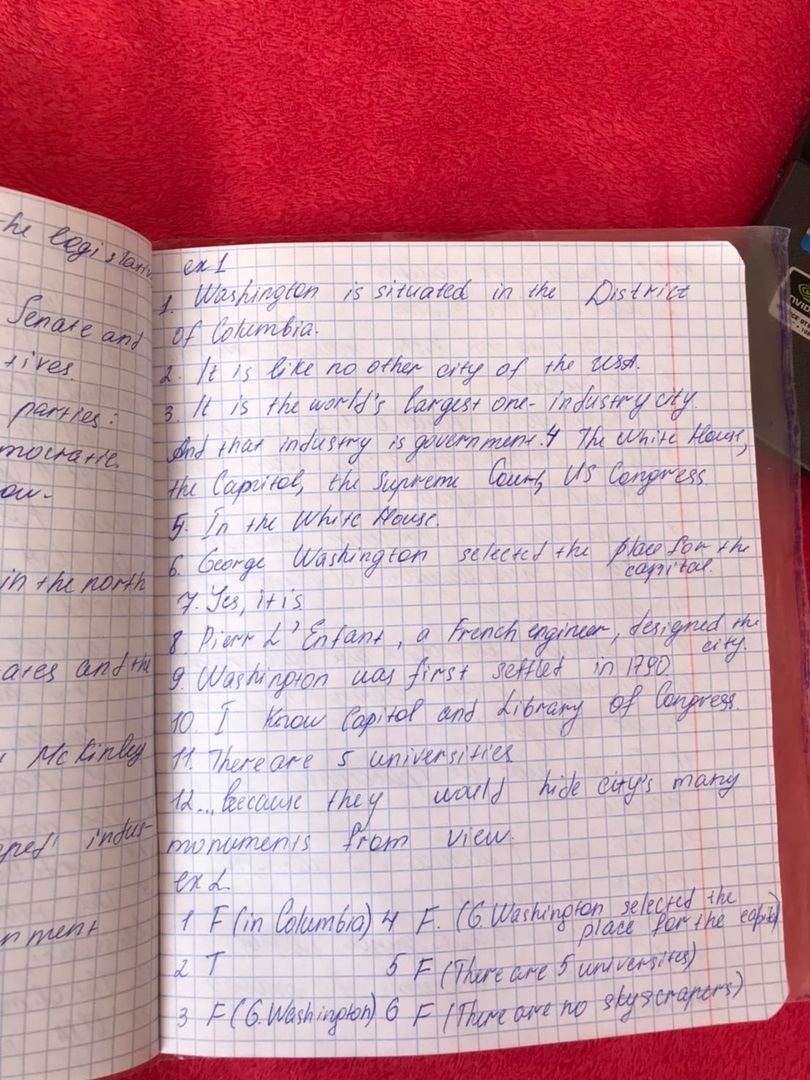 the legislativ
Senate and
tives.
parties:
mocratic
ow-
in the north
ates and the
McKinley
ped indus-
nment
ex 1
1. Washington is situated in the District
of Columbia.
2. It is like no other city of the USA.
3. It is the world's largest one-industry city.
And that industry is government. 4 The White House,
the Capitol, the Supreme Court, US Congress
5. In the White House.
6. George Washington selected the place for the
capital.
7. Yes, it is
8. Pierr L'Enfant, a French engineer, designed the
city.
9. Washington was first settled in 1790
10. I know Capitol and Library of Congress.
11. There are 5 universities
12... because they would hide city's many
monuments from view.
ex 2.
1 F (in Columbia) 4 F. (G. Washington selected the
place for the capital)
2 T 5 F (There are 5 universites)
3 F (G. Washington) 6 F (There are no skyscrapers)
NVID